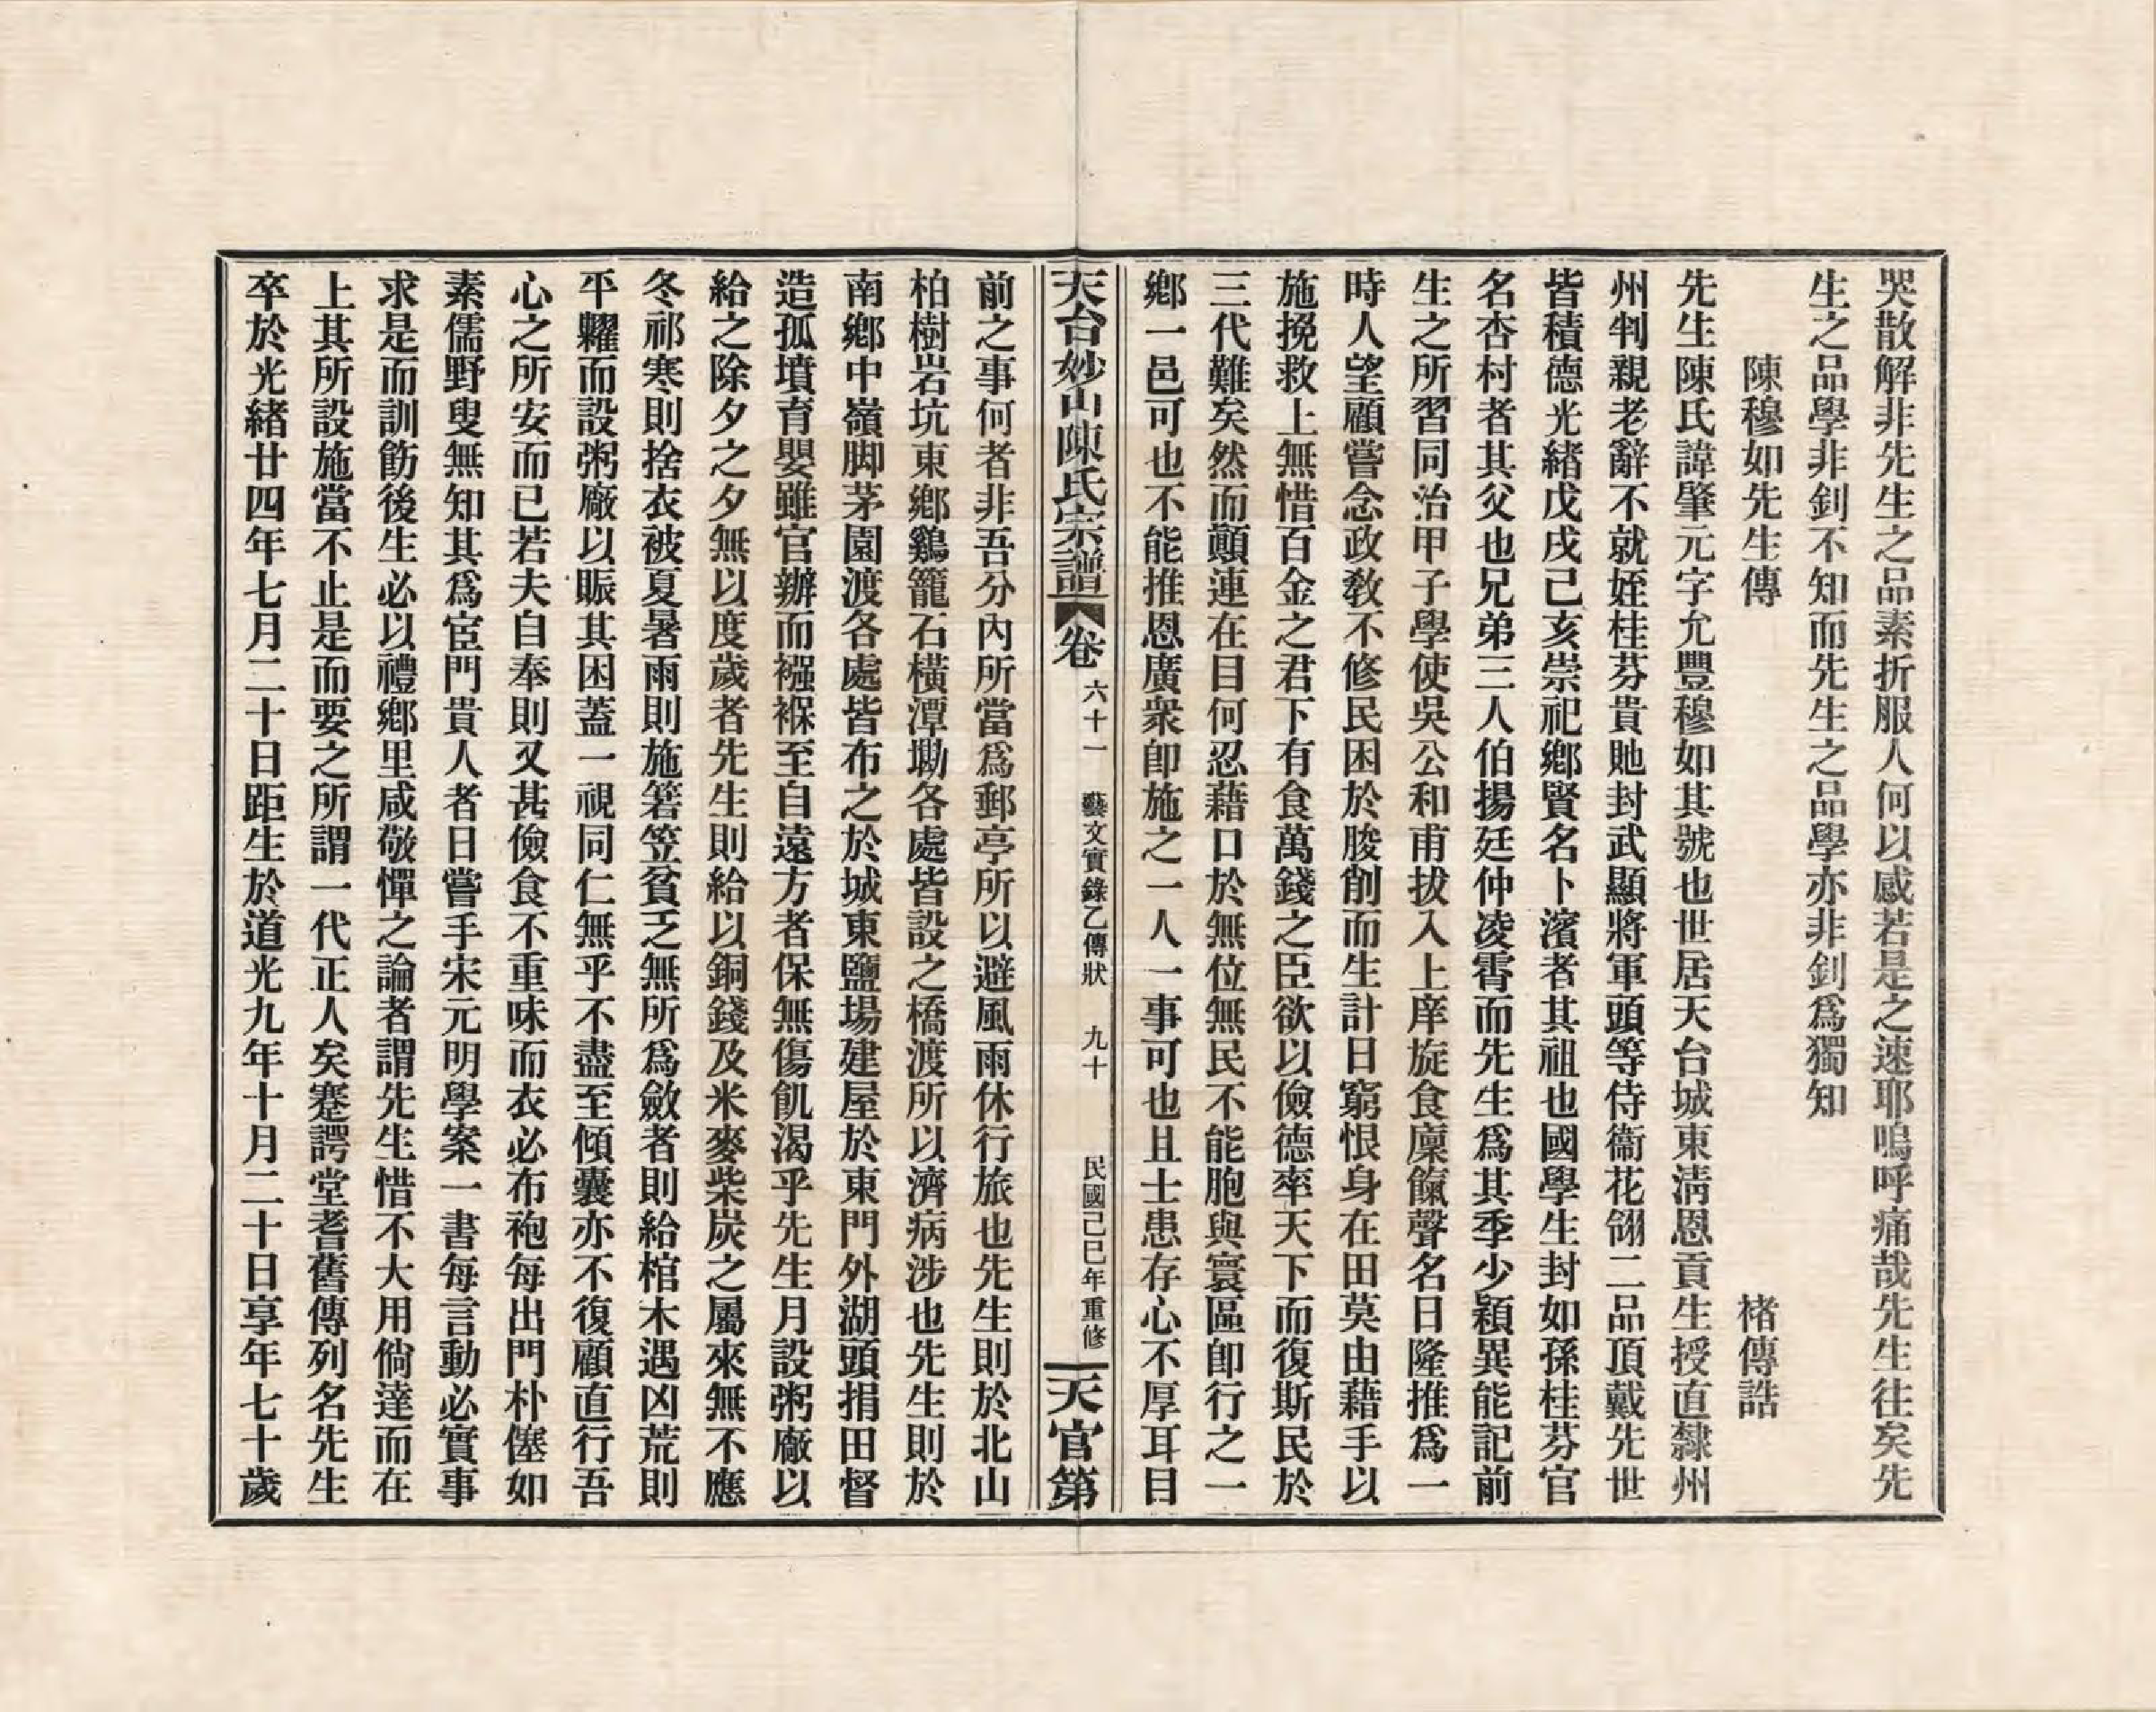 哭散解非先生之品素折服人何以感若是之速耶嗚呼痛哉先生往矣先
生之品學非釗不知而先生之品學亦非釗爲獨知
陳穆如先生傳
褚傳誥
先生陳氏諱肇元字允豐穆如其號也世居天台城東淸恩貢生授直隸州
州判親老辭不就姪桂芬貴貤封武顯將軍頭等侍衞花翎二品頂戴先世
皆積德光緒戊戌己亥崇祀鄉賢名卜濱者其祖也國學生封如孫桂芬官
名杏村者其父也兄弟三人伯揚廷仲凌霄而先生爲其季少穎異能記前
生之所習同治甲子學使吳公和甫拔入上庠旋食廩餼聲名日隆推爲一
時人望顧嘗念政敎不修民困於朘削而生計日窮恨身在田莫由藉手以
施挽救上無惜百金之君下有食萬錢之臣欲以儉德率天下而復斯民於
三代難矣然而顚連在目何忍藉口於無位無民不能胞與寰區卽行之一
鄉一邑可也不能推恩廣衆卽施之一人一事可也且士患存心不厚耳目
天台妙山陳氏宗譜 卷 六十一 藝文實錄乙傳狀 九十 民國己巳年重修 天官第
前之事何者非吾分內所當爲郵亭所以避風雨休行旅也先生則於北山
柏樹岩坑東鄉鷄籠石橫潭墈各處皆設之橋渡所以濟病涉也先生則於
南鄉中嶺脚茅園渡各處皆布之於城東鹽場建屋於東門外湖頭捐田督
造孤墳育嬰雖官辦而襁褓至自遠方者保無傷飢渴乎先生月設粥廠以
給之除夕之夕無以度歲者先生則給以銅錢及米麥柴炭之屬來無不應
冬祁寒則捨衣被夏暑雨則施箬笠貧乏無所爲斂者則給棺木遇凶荒則
平糶而設粥廠以賑其困蓋一視同仁無乎不盡至傾囊亦不復顧直行吾
心之所安而已若夫自奉則又甚儉食不重味而衣必布袍每出門朴僿如
素儒野叟無知其爲宦門貴人者日嘗手宋元明學案一書每言動必實事
求是而訓飭後生必以禮鄉里咸敬憚之論者謂先生惜不大用倘達而在
上其所設施當不止是而要之所謂一代正人矣蹇諤堂耆舊傳列名先生
卒於光緒廿四年七月二十日距生於道光九年十月二十日享年七十歲